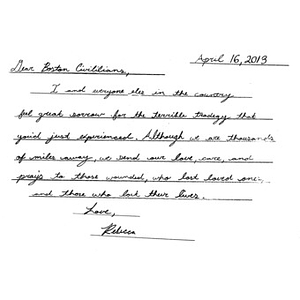 April 16, 2013
Dear Boston Civilians,
I and everyone eles in the country
feel great sorrow for the terrible tradegy that
you'd just experienced. Although we are thousands
of miles away we send our love, care, and
prays to those wounded, who lost loved one,
and those who lost their lives.
Love,
Rebecca